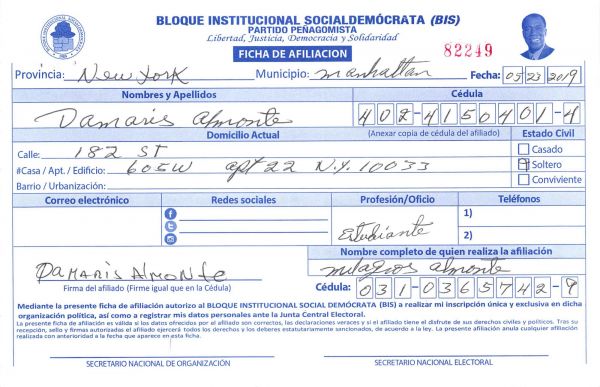 BLOQUE INSTITUCIONAL SOCIALDEMÓCRATA (BIS)
PARTIDO PEÑAGOMISTA
Libertad, Justicia, Democracia y Solidaridad
FICHA DE AFILIACION
82249
Provincia: New York Municipio: Manhattan Fecha: 05 23 2019
Nombres y Apellidos Cédula
Damaris Almonte 402-4150401-4
Domicilio Actual (Anexar copia de cédula del afiliado) Estado Civil
Calle: 182 ST Casado
#Casa / Apt. / Edificio: 605W apt 22 N.Y. 10033 Soltero
Barrio / Urbanización: Conviviente
Correo electrónico Redes sociales Profesión/Oficio Teléfonos
1)
Estudiante 2)
Nombre completo de quien realiza la afiliación
DAMARIS ALMONTE milagros almonte
Firma del afiliado (Firme igual que en la Cédula) Cédula: 031-0365742-9
Mediante la presente ficha de afiliación autorizo al BLOQUE INSTITUCIONAL SOCIAL DEMÓCRATA (BIS) a realizar mi inscripción única y exclusiva en dicha
organización política, así como a registrar mis datos personales ante la Junta Central Electoral.
La presente ficha de afiliación es válida si los datos ofrecidos por el afiliado son correctos, las declaraciones veraces y si el afiliado tiene el disfrute de sus derechos civiles y políticos. Tras su
recepción, sello y firmas autorizadas el afiliado ejercerá todos los derechos y los deberes estatutariamente sancionados, de acuerdo a la ley. La presente afiliación anula cualquier afiliación
realizada con anterioridad a la fecha que aparece en esta ficha.
SECRETARIO NACIONAL DE ORGANIZACIÓN SECRETARIO NACIONAL ELECTORAL